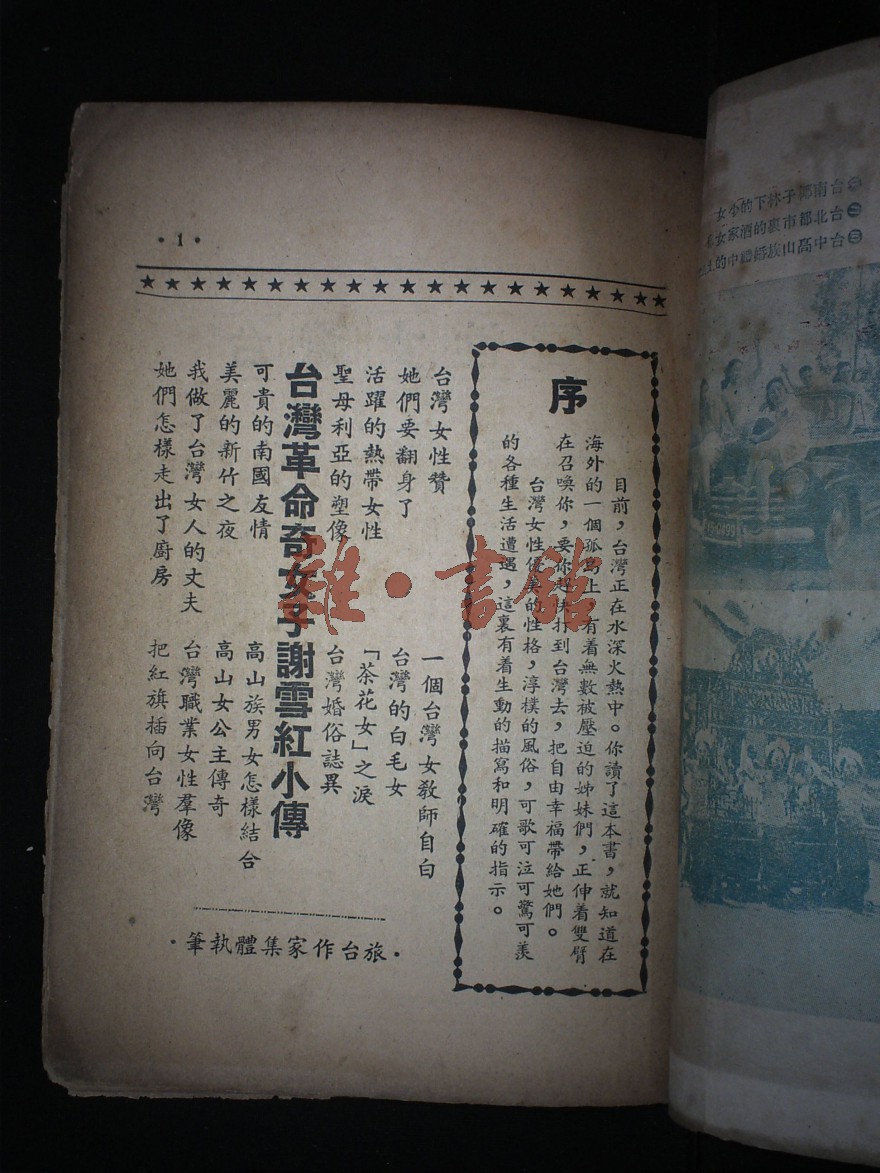 ㊀台南椰子林下的小女
㊁台北都市裏的酒家女
㊂台中高山族婚禮中的
·1·
序
目前，台灣正在水深火熱中。你讀了這本書，就知道在
海外的一個孤島上，有着無數被壓迫的姊妹們，正伸着雙臂
在召喚你，要你趕快打到台灣去，把自由幸福帶給她們。
台灣女性優美的性格，淳樸的風俗，可歌可泣可驚可羨
的各種生活遭遇，這裏有着生動的描寫和明確的指示。
台灣女性贊
她們要翻身了
活躍的熱帶女性
聖母利亞的塑像
台灣革命奇女子謝雪紅小傳
可貴的南國友情
美麗的新竹之夜
我做了台灣女人的丈夫
她們怎樣走出了廚房
一個台灣女教師自白
台灣的白毛女
「茶花女」之淚
台灣婚俗誌異
高山族男女怎樣結合
高山女公主傳奇
台灣職業女性羣像
把紅旗插向台灣
·旅台作家集體執筆·
雜·書館